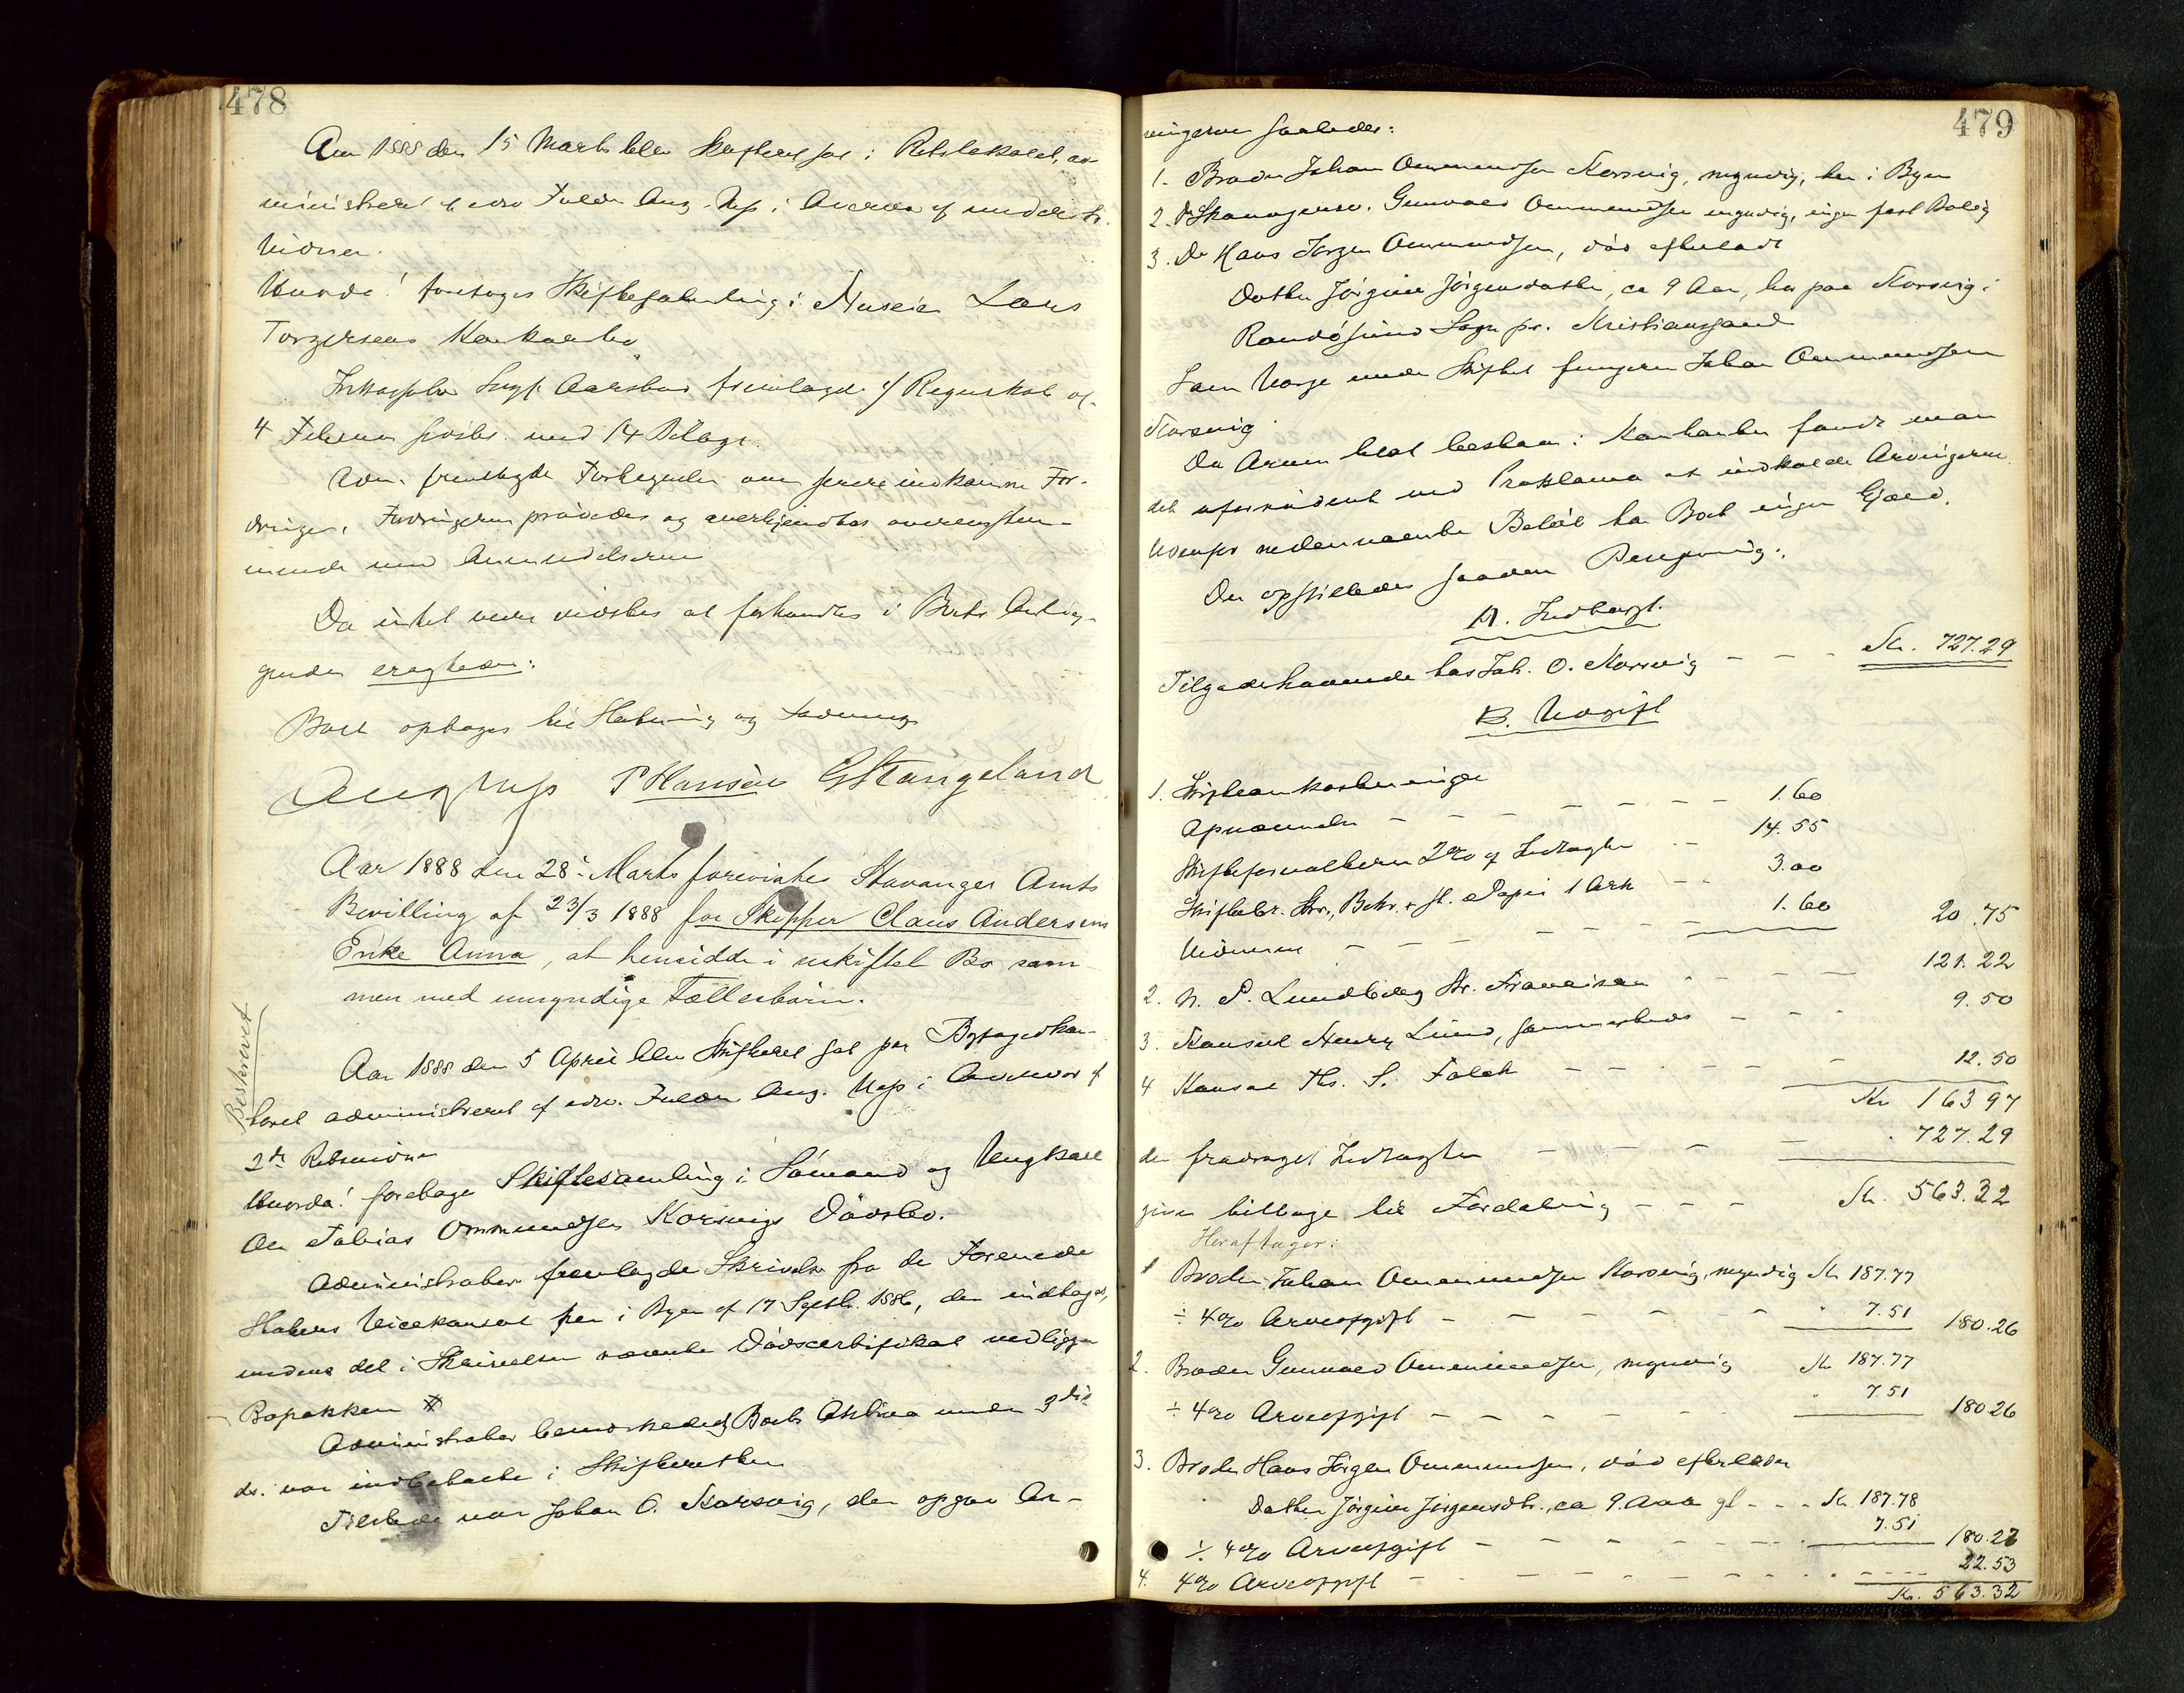 478
Aar 1888 den 15 Marts blev Skifteret sat i Retslokalet, ad-
ministreret af edsv. Fuldm. Aug. Næss i Overvær af underskr.
Vidner.
Hvorda! foretoges Skiftesamling i Lars
Torgersens Konkursbo
Inkassator Aarsbas fremlagde Regnskab af
4 Februar med 14 Bilage.
Adm. fremlagde Fortegnelse over senere indkomne For-
dringer. Fordringerne prøvedes og anerkjendtes overensstem-
mende med Anmeldelserne
Da intet mere vidstes at forhandles i Boets Anlig-
gender eragtedes:
Boet optages til Slutning og Lodning
Aug Næss P Hansen G Stangeland
Aar 1888 den 28de Marts forevistes Stavanger Amts
Bevilling af 23/3 1888 for Skipper Claus Andersens
Enke Anna, at hensidde i uskiftet Bo sam-
men med umyndige Fællesbørn.
Beskrevet
Aar 1888 den 5 April blev Skifteret sat paa Byfogedkon-
toret administreret af edsv. Fuldm. Aug. Næss i Overvær af
2de Retsvidner
Hvorda! foretoges Skiftesamling i Sømand og Ungkarl
Ole Tobias Ommundsen Korsvigs Dødsbo.
Administrator fremlagde Skrivelse fra de Forenede
Staters Vicekonsul her i Byen af 17 Septb. 1886, der indtages,
medens det i Skrivelsen nævnte Dødscertifikat vedligger
Bopakken #
Administrator bemærkede, at Boets Aktiva under 3die
ds. var indbetalte i Skifteretten
Tilstede var Johan O. Korsvig, der opgav Ar-
479
vingerne saaledes:
1. Broder Johan Ommundsen Korsvig, myndig, her i Byen
2. Do Gunvald Ommundsen myndig, ingen fast Bolig
3. Do Hans Jørgen Ommundsen, død efterladt
Datter Jørgine Jørgensdatter, ca 9 Aar, bor paa Korsvig i
Randøsund Sogn pr. Kristianssand
Som Værge under Skiftet fungerer Johan Ommundsen
Korsvig
Da Arven blot bestaar i Kontanter fandt man
det ufornødent ved Proklama at indkalde Arvingerne.
Udenfor nedennævnte Beløb har Boet ingen Gjæld.
Der opstilledes saadan Beregning:
A. Indtægt.
Tilgodehavende hos Joh. O. Korsvig - - - Kr. 727.29
B. Udgift
1. Skifteomkostninger
Apnævnelse - - - - - - - 1.60
Skifteforvalteren 2% af Indtægten - - 14.55
Skiftebr. Skr., Bekr. & st. Papir 1 Ark - - 3.00
Vidnerne - - - - - - - 1.60 20.75
2. N. P. Lundberg St. Francisco - - - - 121.22
3. Konsul Henry Lund, sammesteds - - - 9.50
4 Konsul Ths. S. Falck - - - - - 12.50
Kr 163 97
der fradraget Indtægten - - - - 727.29
giver tilbage til Fordeling - - - Kr. 563.32
Heraf tager:
1 Broder Johan Ommundsen Korsvig, myndig Kr 187.77
÷ 4% Arveafgift - - - - - - 7.51 180.26
2. Broder Gunvald Ommundsen, myndig Kr 187.77
÷ 4% Arveafgift - - - - 7.51 180.26
3. Broder Hans Jørgen Ommundsen, død efterlader
Datter Jørgine Jørgensdtr., ca 9 Aar gl - - - Kr. 187.78
÷ 4% Arveafgift - - - - - 7.51 180.27
4. 4% Arveafgift - - - - - - - - 22.53
Kr. 563.32